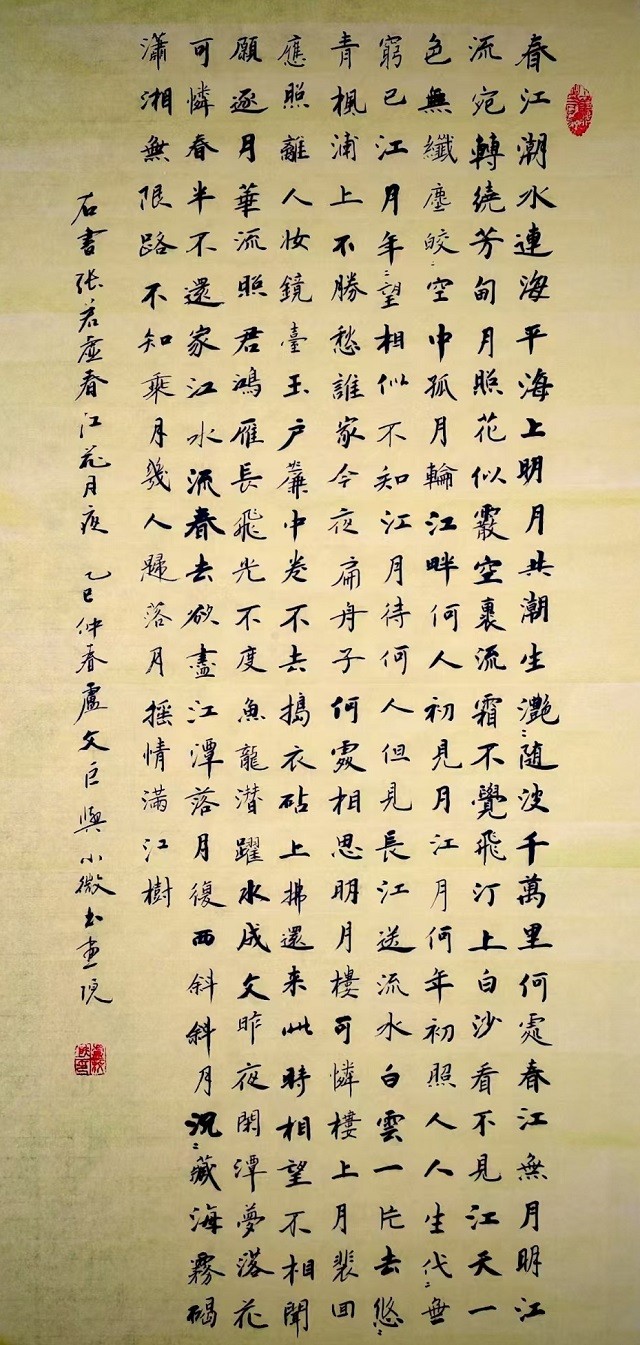 春江潮水連海平海上明月共潮生灔〻随波千萬里何處春江無月明江
流宛轉繞芳甸月照花似霰空裏流霜不覺飛汀上白沙看不見江天一
色無纖塵皎〻空中孤月輪江畔何人初見月江月何年初照人人生代〻無
窮已江月年〻望相似不知江月待何人但見長江送流水白雲一片去悠〻
青楓浦上不勝愁誰家今夜扁舟子何處相思明月樓可憐樓上月裴回
應照離人妝鏡臺玉戶簾中卷不去搗衣砧上拂還来此時相望不相聞
願逐月華流照君鴻雁長飛光不度魚龍潛躍水成文昨夜閑潭夢落花
可憐春半不還家江水流春去欲盡江潭落月復西斜斜月沉〻藏海霧碣
瀟湘無限路不知乘月幾人歸落月摇情滿江樹
右書張若虚春江花月夜 乙巳仲春盧文巨與小微书画院